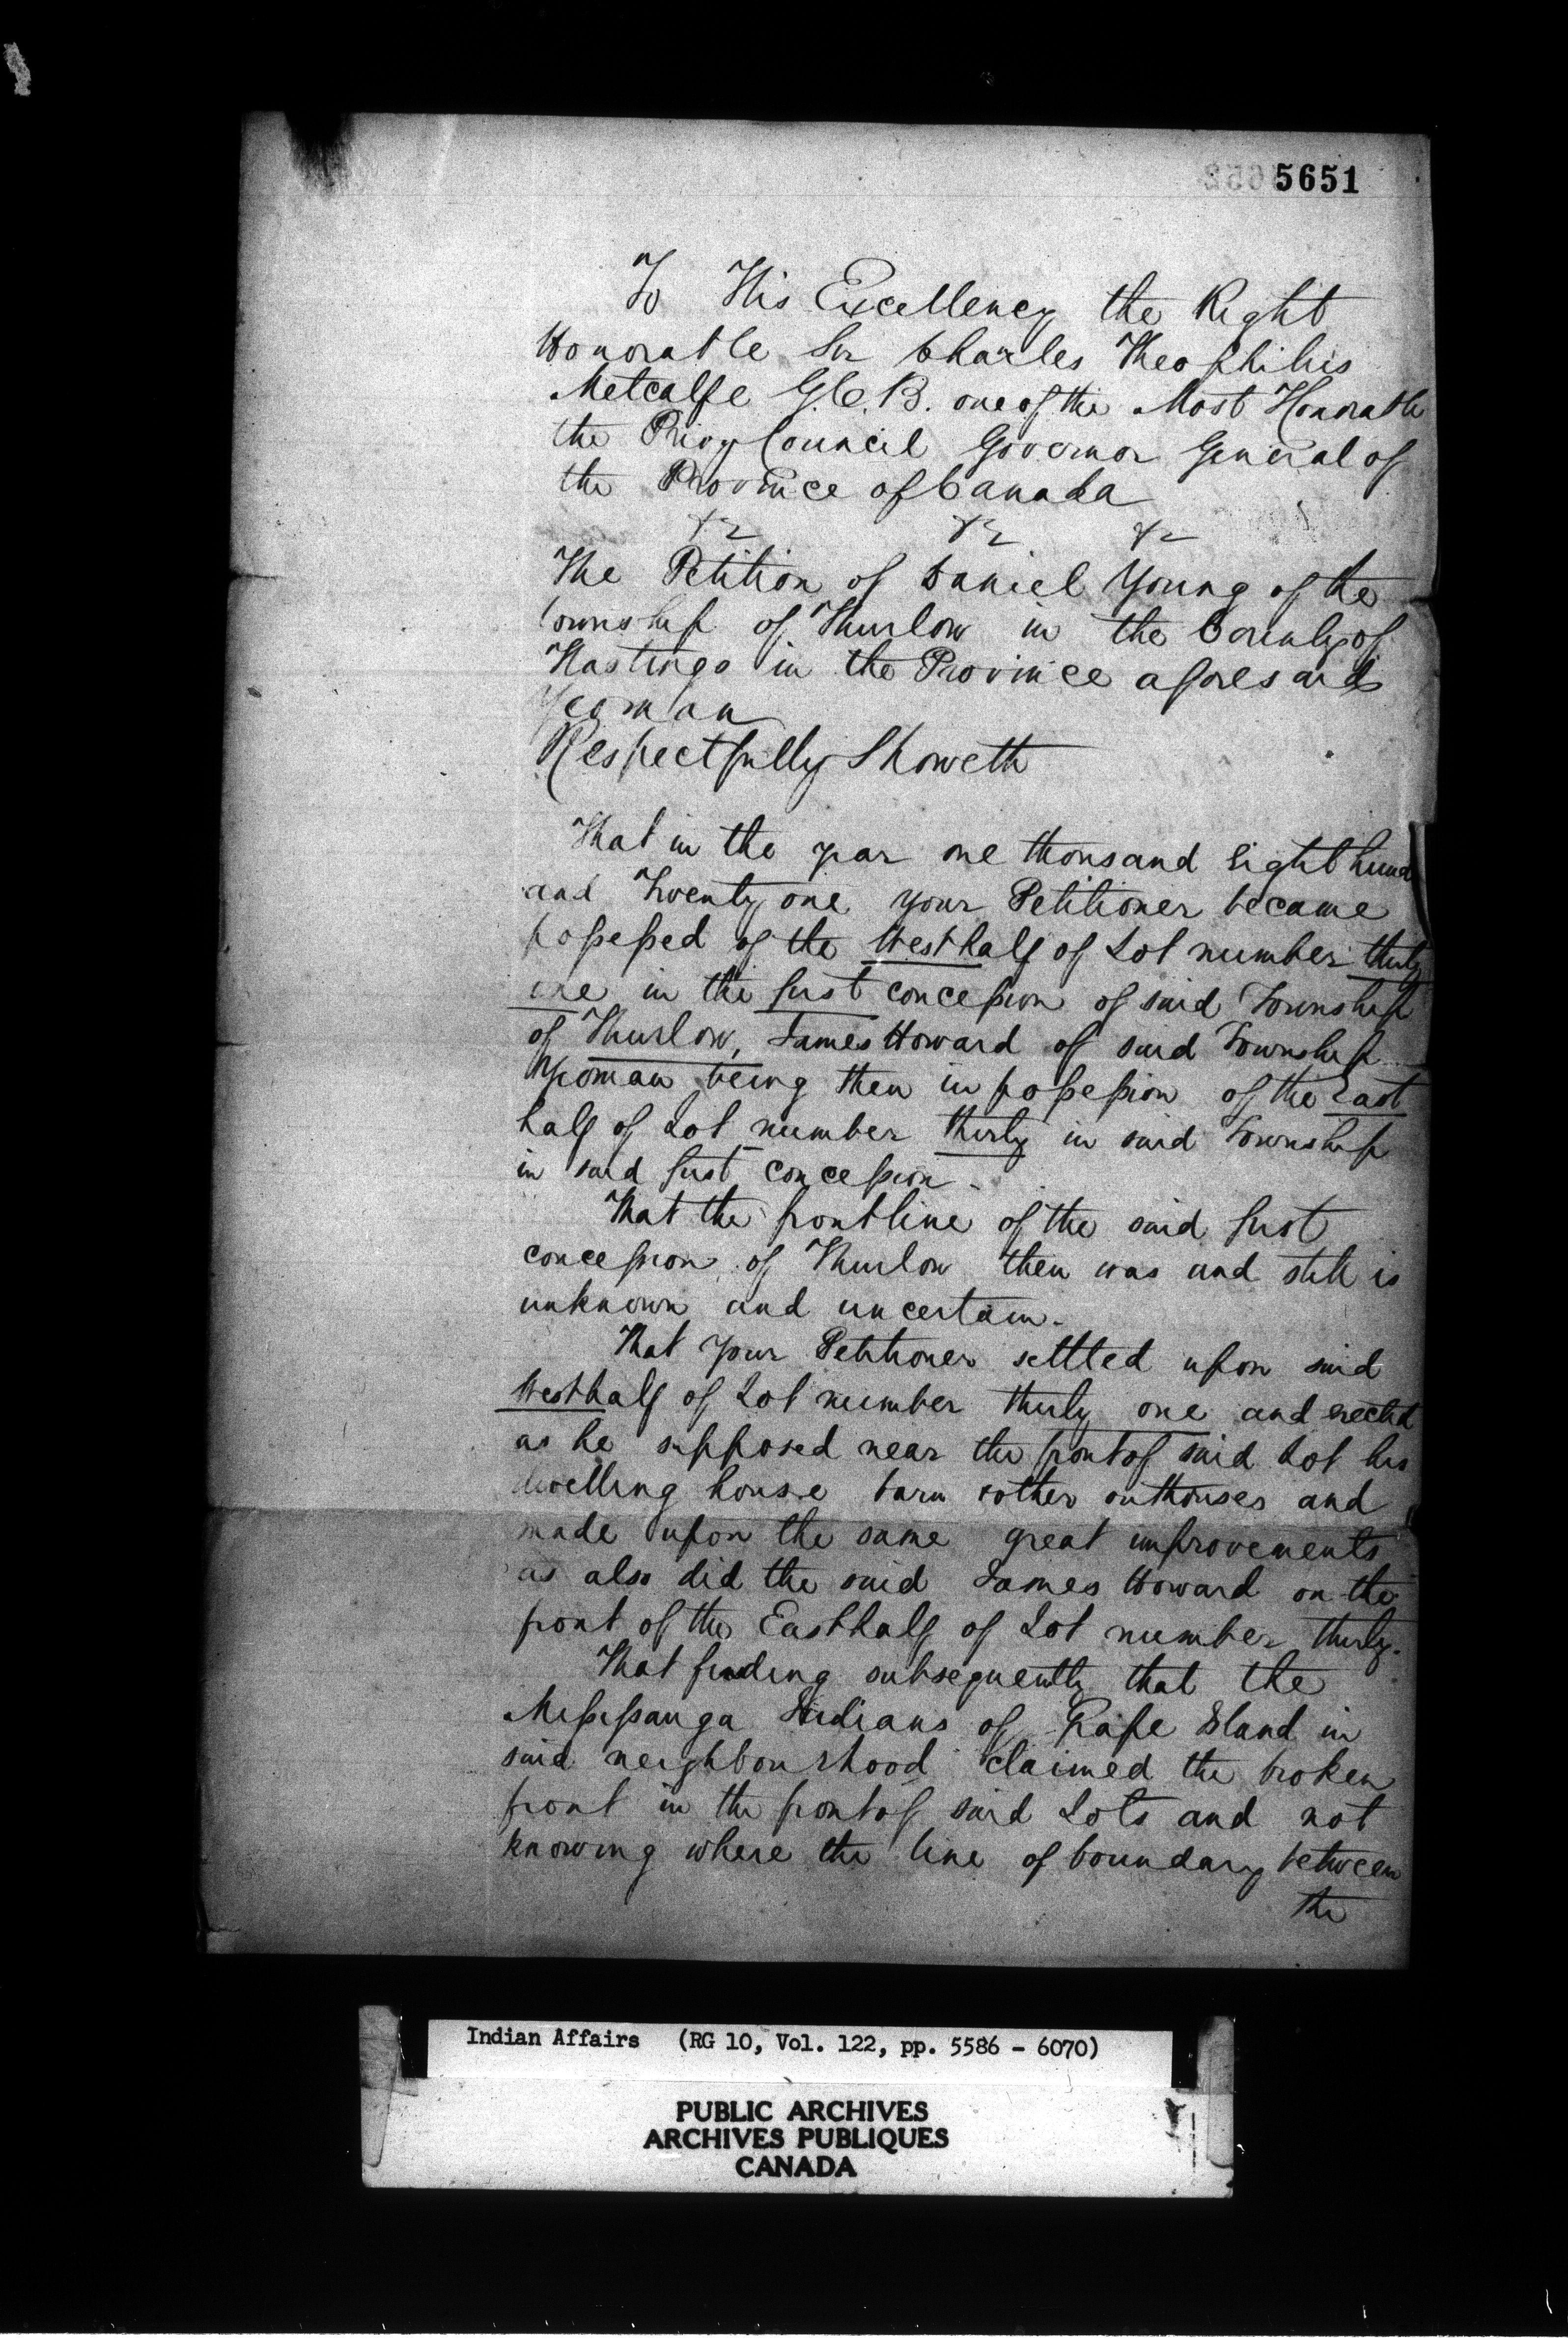 5651
To His Excellency the Right
Honorable Sir Charles Theophilus
Metcalfe G.C.B. one of the Most Honorable
the Privy Council Governor General of
the Province of Canada
&c &c &c
The Petition of Daniel Young of the
township of Thurlow in the County of
Hastings in the Province aforesaid
Yeoman
Respectfully Showeth
That in the year one thousand eight hund
and Twenty one your Petitioner became
possessed of the West half of Lot number thirty
one in the first concession of said Township
of Thurlow, James Howard of said Township
Yeoman being then in possession of the East
half of Lot number thirty in said Township
in said first concession.
That the front line of the said first
concession of Thurlow then was and still is
unknown and uncertain.
That your Petitioner settled upon said
West half of Lot number thirty one and erected
as he supposed near the front of said Lot his
dwelling house barn & other outhouses and
made upon the same great improvements
as also did the said James Howard on the
front of the East half of Lot number thirty.
That finding subsequently that the
Mississauga Indians of Grape Island in
said neighbourhood claimed the broken
front in the front of said Lots and not
knowing where the line of boundary between
the
Indian Affairs (RG 10, Vol. 122, pp. 5586 - 6070)
PUBLIC ARCHIVES
ARCHIVES PUBLIQUES
CANADA